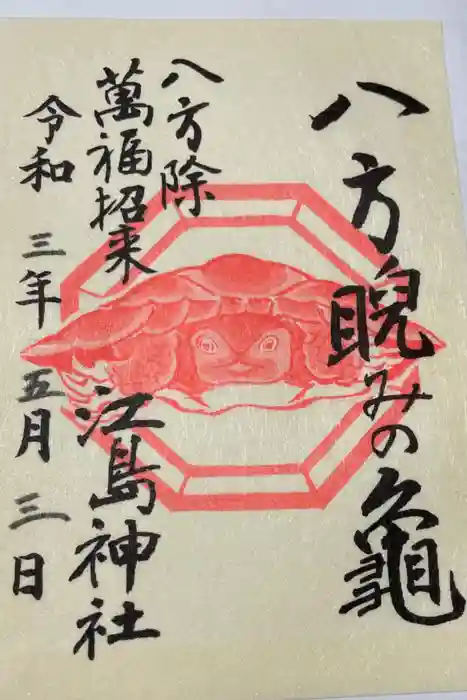 八方睨みの亀
八方除
萬福招来
江島神社
令和三年五月三日